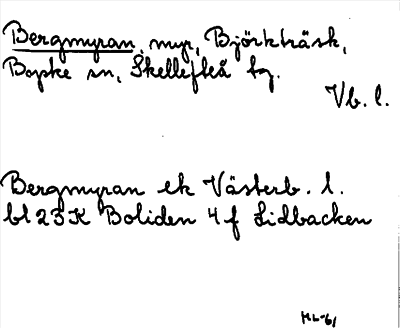 Bergmyran, myr, Björkträsk,
Bopke sn, Skellefteå tg.
Vb. l.
Bergmyran ek Västerb. l.
bl 23K Boliden 4 f Lidbacken